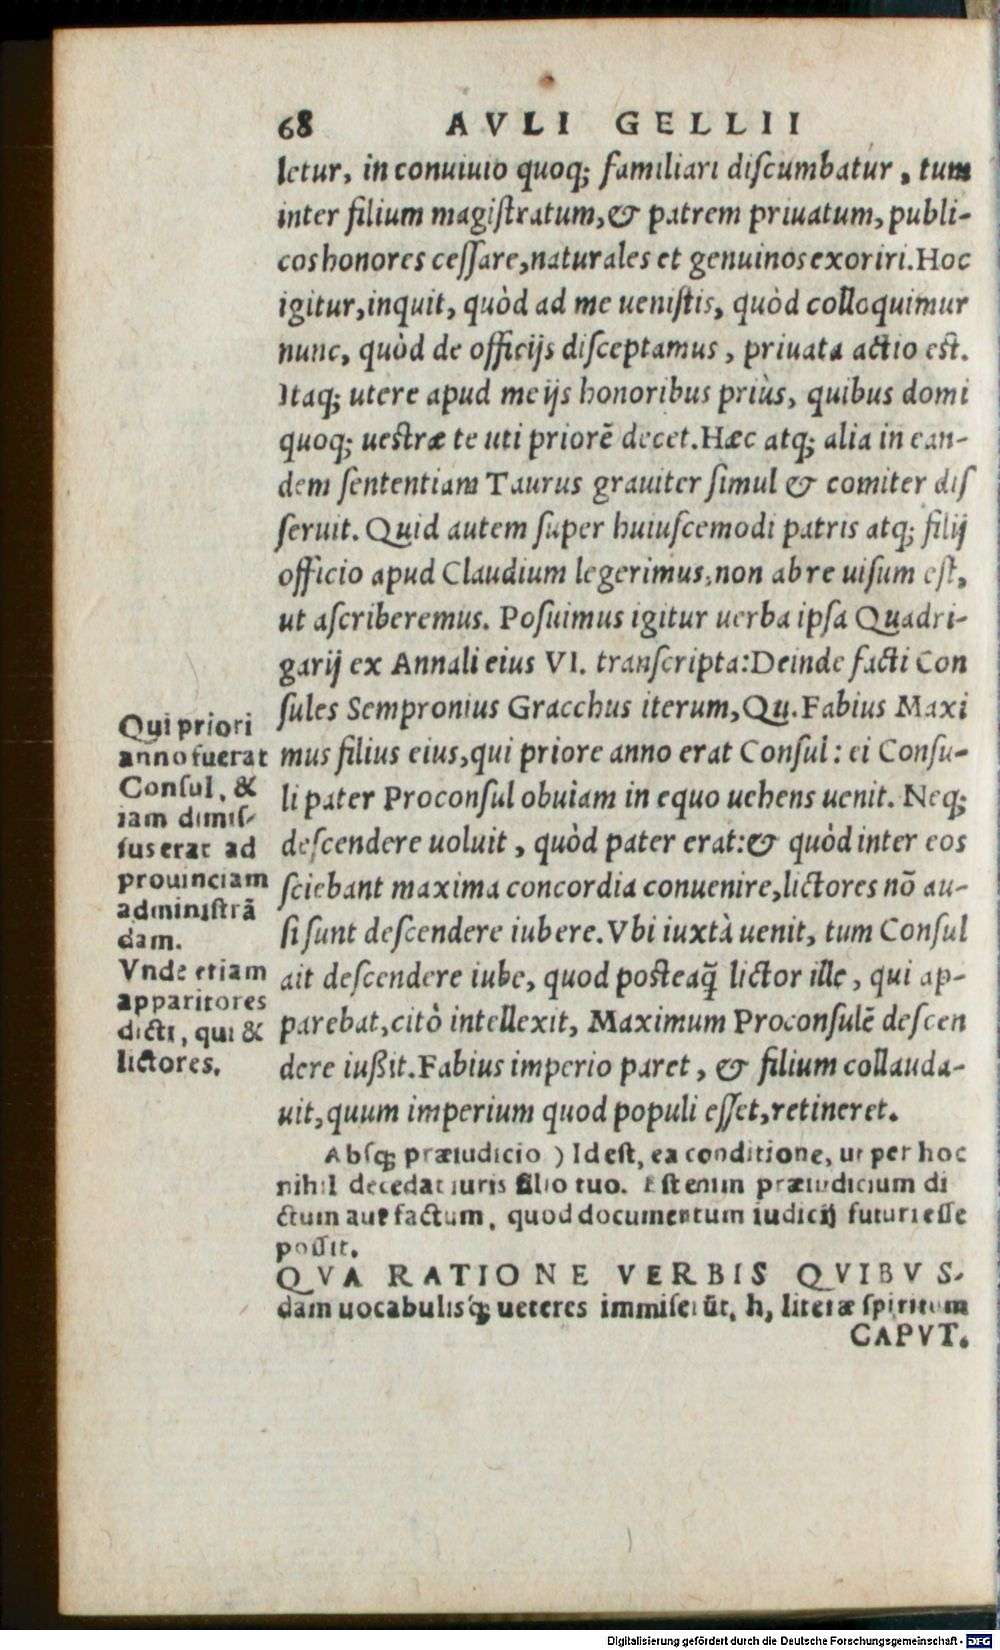 68 AVLI GELLII
letur, in conuiuio quoq; familiari diſcumbatur, tum
inter filium magiſtratum, & patrem priuatum, publi-
cos honores ceſſare, naturales et genuinos exoriri. Hoc
igitur, inquit, quòd ad me ueniſtis, quòd colloquimur
nunc, quòd de officijs diſceptamus, priuata actio est.
Itaq; utere apud me ijs honoribus priùs, quibus domi
quoq; uestræ te uti priorē decet. Hæc atq; alia in ean-
dem ſententiam Taurus grauiter ſimul & comiter diſ
ſeruit. Quid autem ſuper huiuſcemodi patris atq; filij
officio apud Claudium legerimus, non ab re uiſum eſt,
ut aſcriberemus. Poſuimus igitur uerba ipſa Quadri-
garij ex Annali eius VI. tranſcripta: Deinde facti Con
ſules Sempronius Gracchus iterum, Qu. Fabius Maxi
mus filius eius, qui priore anno erat Conſul: ei Conſu-
li pater Proconſul obuiam in equo uehens uenit. Neq;
deſcendere uoluit, quòd pater erat: & quòd inter eos
ſciebant maxima concordia conuenire, lictores nō au-
ſi ſunt deſcendere iubere. Vbi iuxtà uenit, tum Conſul
ait deſcendere iube, quod posteaq̃ lictor ille, qui ap-
parebat, citò intellexit, Maximum Proconſulē deſcen
dere iußit. Fabius imperio paret, & filium collauda-
uit, quum imperium quod populi eſſet, retineret.
Qui priori
anno fuerat
Conſul, &
iam dimiſ-
ſus erat ad
prouinciam
adminiſtrā
dam.
Vnde etiam
apparitores
dicti, qui &
lictores.
Abſq; præiudicio) Id eſt, ea conditione, ut per hoc
nihil decedat iuris filio tuo. Eſt enim præiudicium di
ctum aut factum, quod documentum iudicij futuri eſſe
poſſit.
QVA RATIONE VERBIS QVIBVS-
dam uocabulisq; ueteres immiſerūt, h, literæ ſpiritum
CAPVT.
Digitalisierung gefördert durch die Deutsche Forschungsgemeinschaft - DFG